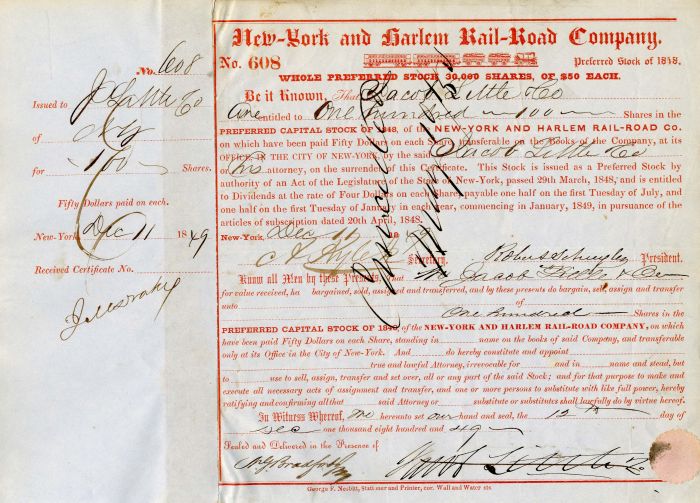 No. 608
Issued to J Little & Co
of N.Y
for 100 Shares.
Fifty Dollars paid on each.
New-York, Dec 11 1849
Received Certificate No.
New-York and Harlem Rail-Road Company.
No. 608 Preferred Stock of 1848.
WHOLE PREFERRED STOCK, 30,000 SHARES, OF $50 EACH.
Be it Known, That Jacob Little & Co
are entitled to One hundred 100 Shares in the
PREFERRED CAPITAL STOCK OF 1848, of the NEW-YORK AND HARLEM RAIL-ROAD CO.
on which have been paid Fifty Dollars on each Share, transferable on the Books of the Company, at its
OFFICE, IN THE CITY OF NEW-YORK, by the said Jacob Little & Co
or his attorney, on the surrender of this Certificate. This Stock is issued as a Preferred Stock by
authority of an Act of the Legislature of the State of New-York, passed 29th March, 1848, and is entitled
to Dividends at the rate of Four Dollars on each Share, payable one half on the first Tuesday of July, and
one half on the first Tuesday of January in each year, commencing in January, 1849, in pursuance of the
articles of subscription dated 20th April, 1848.
New-York, Dec 11 1849
Secretary, Robert Schuyler President.
Know all Men by these Presents, That We Jacob Little & Co
for value received, ha bargained, sold, assigned and transferred, and by these presents do bargain, sell, assign and transfer
unto of
One hundred Shares in the
PREFERRED CAPITAL STOCK OF 1848, of the NEW-YORK AND HARLEM RAIL-ROAD COMPANY, on which
have been paid Fifty Dollars on each Share, standing in name on the books of said Company, and transferable
only at its Office in the City of New-York. And do hereby constitute and appoint
true and lawful Attorney, irrevocable for and in name and stead, but
to use to sell, assign, transfer and set over, all or any part of the said Stock; and for that purpose to make and
execute all necessary acts of assignment and transfer, and one or more persons to substitute with like full power, hereby
ratifying and confirming all that said Attorney or substitute or substitutes shall lawfully do by virtue hereof.
In Witness Whereof, We hereunto set our hand and seal, the 12th day of
Dec one thousand eight hundred and
Sealed and Delivered in the Presence of
George F. Nesbitt, Stationer and Printer, cor. Wall and Water sts
Cancelled